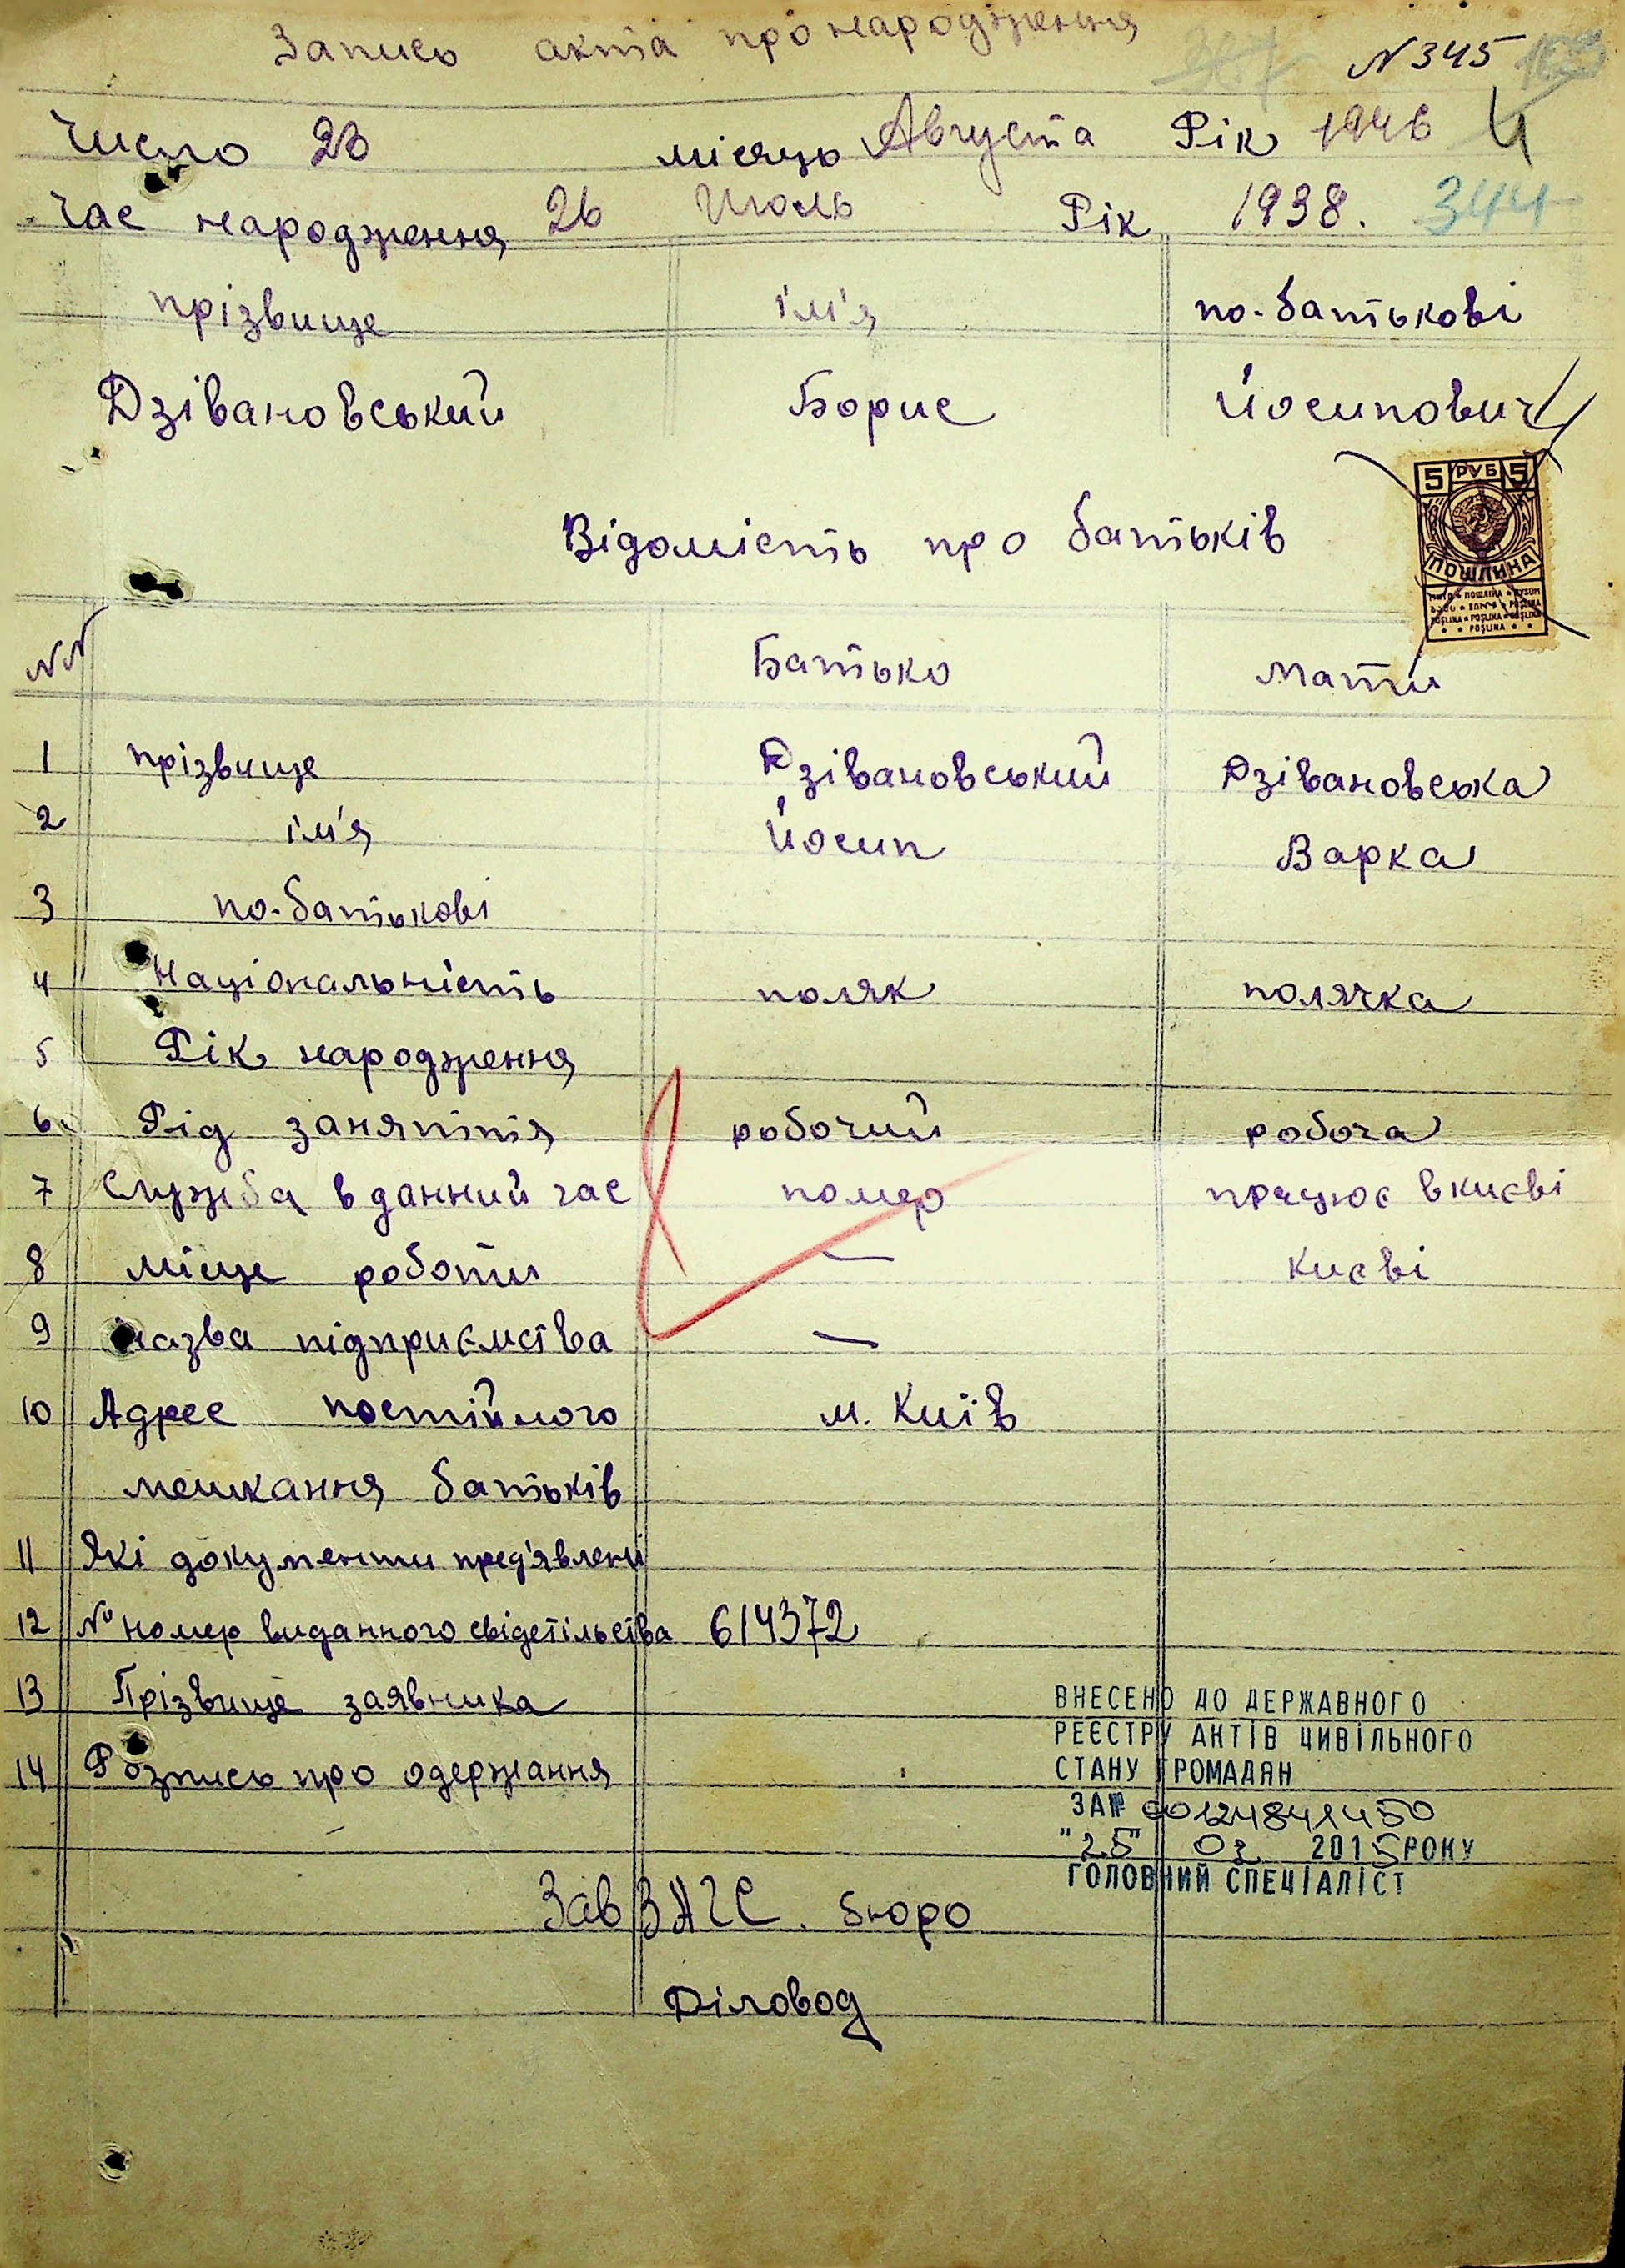 Запись акта про народження
N 345
Число 23 місяць Августа Рік 1946
Час народження 26 Июль Рік 1938. 344
прізвище ім'я по-батькові
Дзівановський Борис Йосипович
5 РУБ 5
ПОШЛИНА
Відомість про батьків
NN Батько Мати
1 прізвище Дзівановський Дзівановська
2 ім'я Йосип Варка
3 по-батькові
4 Національність поляк полячка
5 Рік народження
6. Рід заняття робочий робоча
7 Служба в данний час помер працює в києві
8 місце роботи — києві
9 назва підприємства —
10 Адрес постійного м. Київ
мешкання батьків
11 Які документи пред'явлені
12 № номер виданного свідетільства 614372
13 Прізвище заявника
14 Розпись про одержання
ВНЕСЕНО ДО ДЕРЖАВНОГО
РЕЄСТРУ АКТІВ ЦИВІЛЬНОГО
СТАНУ ГРОМАДЯН
ЗА № 00124841450
"25" 03 2015 РОКУ
ГОЛОВНИЙ СПЕЦІАЛІСТ
Зав ЗАГС. бюро
Діловод